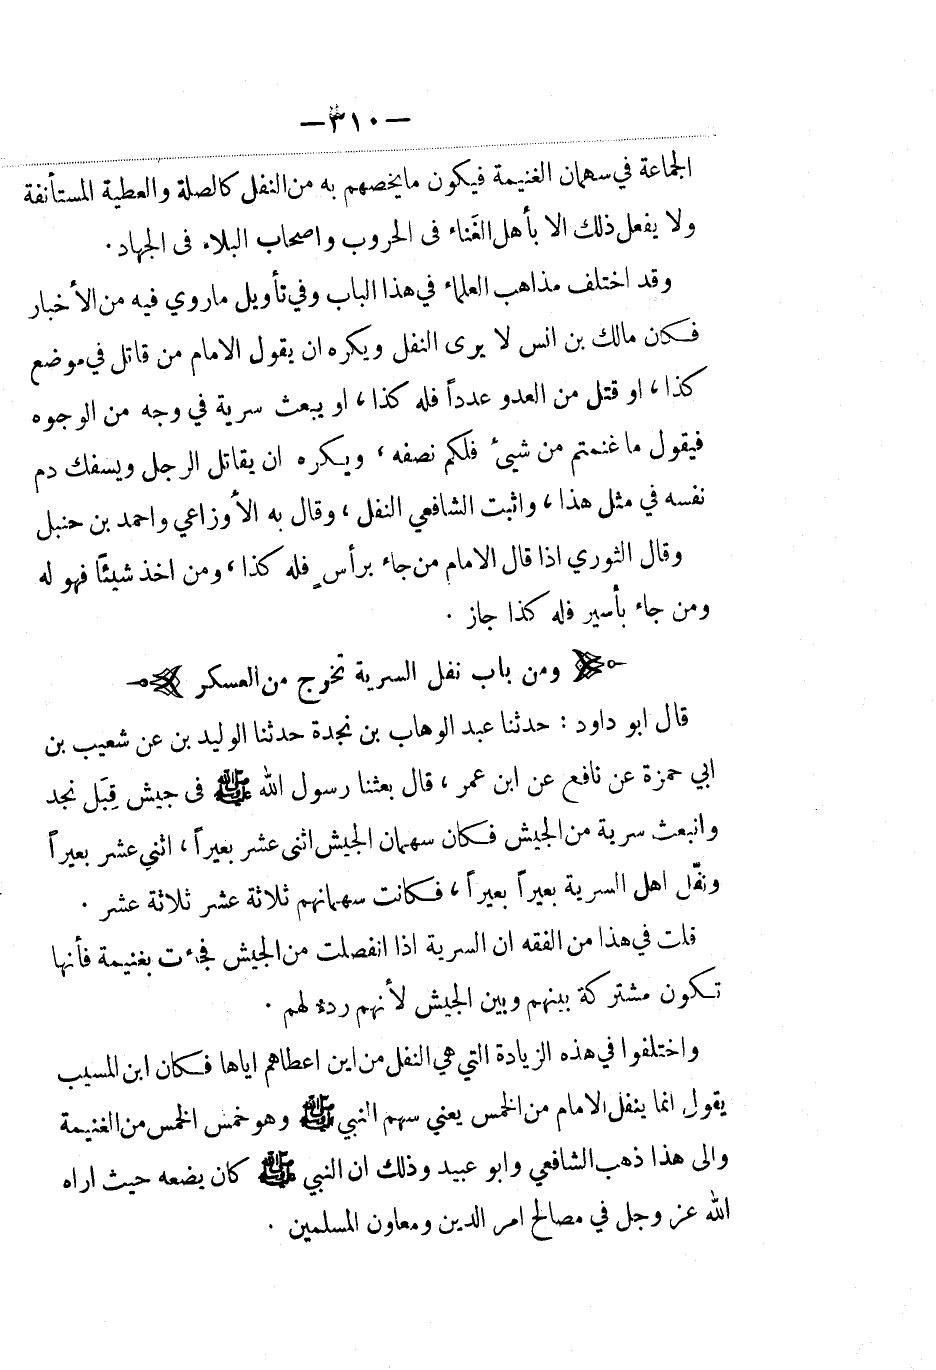 —٣١٠—
الجماعة في سهمان الغنيمة فيكون مايخصهم به من النفل كالصلة والعطية المستأنفة
ولا يفعل ذلك الا بأهل الغَناء فى الحروب واصحاب البلاء فى الجهاد.
وقد اختلف مذاهب العلماء في هذا الباب وفي تأويل ماروي فيه من الأخبار
فكان مالك بن انس لا يرى النفل ويكره ان يقول الامام من قاتل في موضع
كذا، او قتل من العدو عدداً فله كذا، او يبعث سرية في وجه من الوجوه
فيقول ما غنمتم من شيئ فلكم نصفه، ويكره ان يقاتل الرجل ويسفك دم
نفسه في مثل هذا، واثبت الشافعي النفل، وقال به الأوزاعي واحمد بن حنبل
وقال الثوري اذا قال الامام من جاء برأسٍ فله كذا، ومن اخذ شيئاً فهو له
ومن جاء بأسير فله كذا جاز.
ومن باب نفل السرية تخرج من العسكر
قال ابو داود: حدثنا عبد الوهاب بن نجدة حدثنا الوليد بن عن شعيب بن
ابي حمزة عن نافع عن ابن عمر، قال بعثنا رسول الله ﷺ فى جيش قِبَل نجد
وانبعث سرية من الجيش فكان سهمان الجيش اثنى عشر بعيراً، اثني عشر بعيراً
ونفّل اهل السرية بعيراً بعيراً، فكانت سهمانهم ثلاثة عشر ثلاثة عشر.
قلت في هذا من الفقه ان السرية اذا انفصلت من الجيش فجاءت بغنيمة فأنها
تكون مشتركة بينهم وبين الجيش لأنهم ردء لهم.
واختلفوا في هذه الزيادة التي هي النفل من اين اعطاهم اياها فكان ابن المسيب
يقول انما ينفل الامام من الخمس يعني سهم النبي ﷺ وهو خمس الخمس من الغنيمة
والى هذا ذهب الشافعي وابو عبيد وذلك ان النبي ﷺ كان يضعه حيث اراه
الله عز وجل في مصالح امر الدين ومعاون المسلمين.